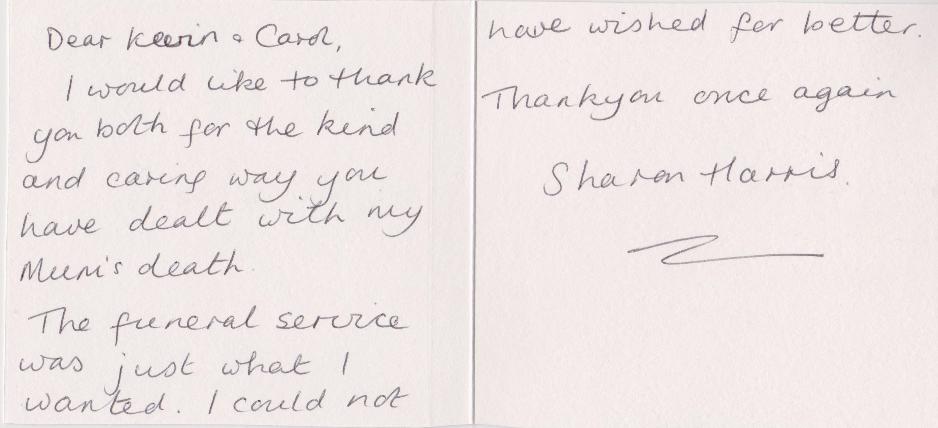 Dear Kevin & Carol,
I would like to thank
you both for the kind
and caring way you
have dealt with my
Mum's death.
The funeral service
was just what I
wanted. I could not
have wished for better.
Thankyou once again
Sharon Harris.